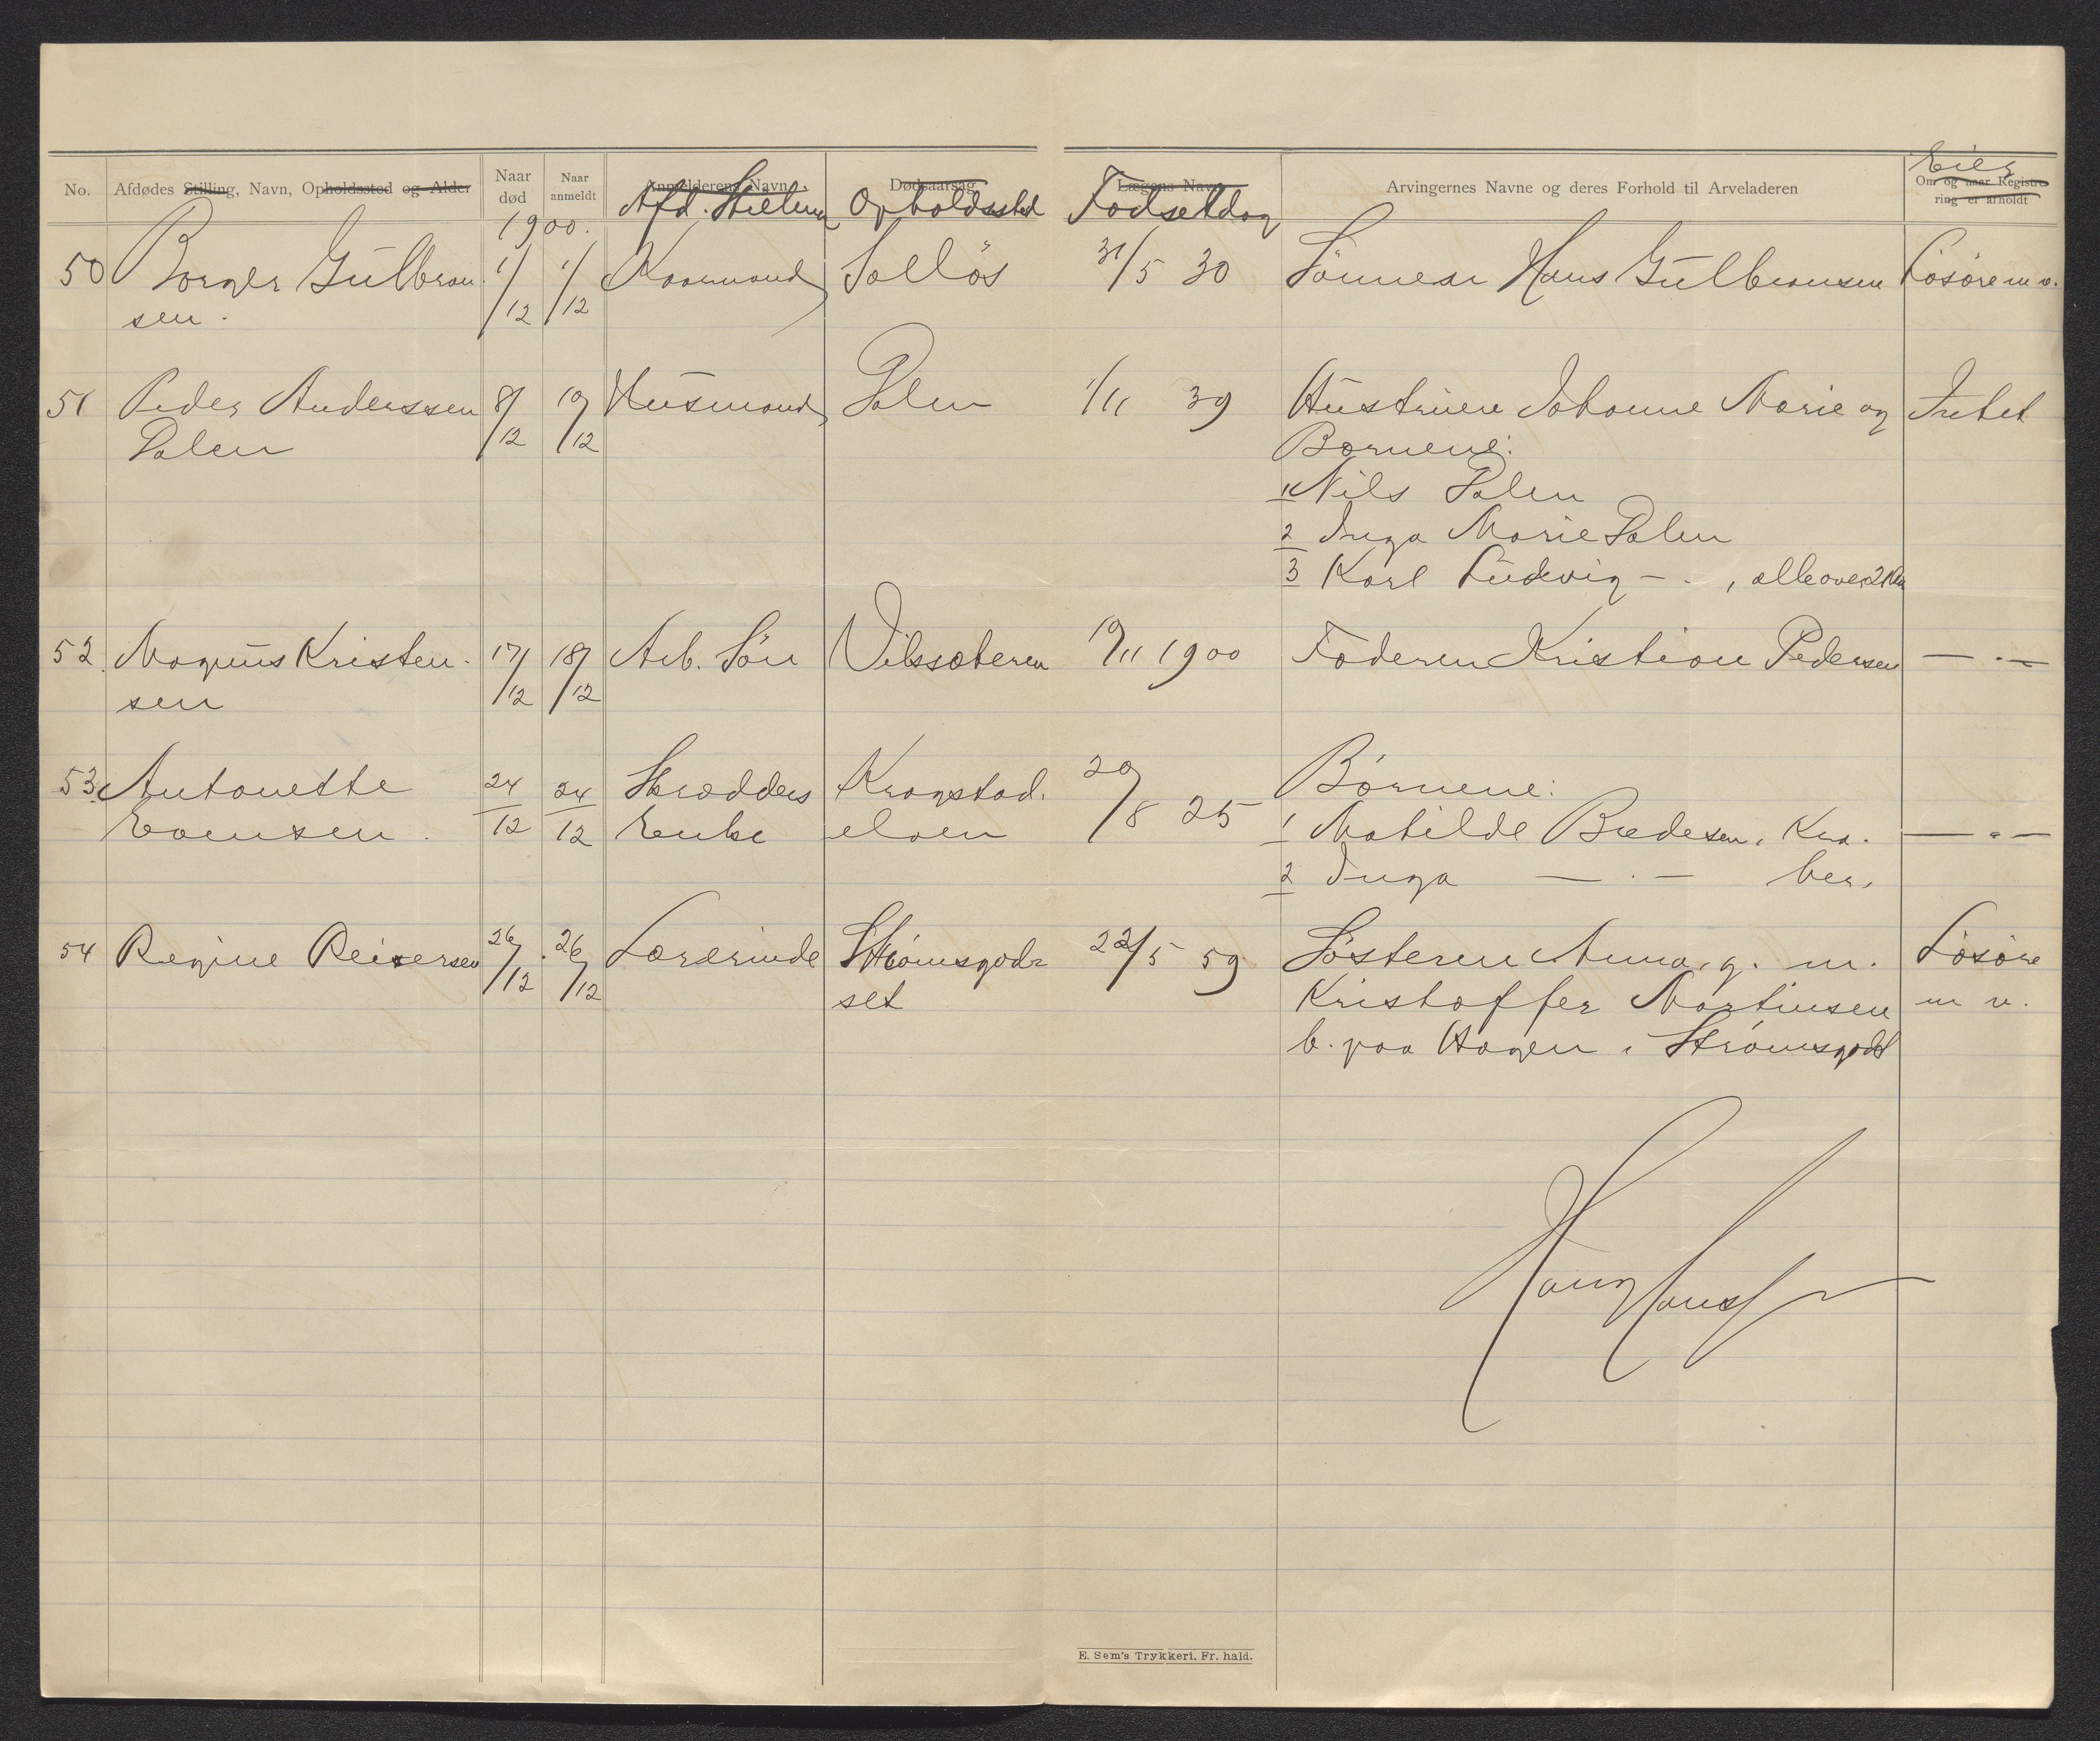 No. Afdødes Stilling, Navn, Opholdssted og Alder Naar død Naar anmeldt Anmelderens Navn Dødsaarsag Lægens Navn Arvingernes Navne og deres Forhold til Arveladeren Om og naar Registrering er afholdt
Afd. Stilling Opholdssted Fødselsdag Eier
1900.
50 Borger Gulbran 1/12 1/12 Kaarmand Solløs 31/5 30 Sønnen Hans Gulbransen Løsøre m v.
sen.
51 Peder Anderssen 8/12 10/12 Husmand Dalen 1/11 39 Hustruen Johanne Marie og Intet
Dalen Børnene:
1 Nils Dalen
2 Inga Marie Dalen
3 Karl Ludvig - . , alle over 21 Aar
52. Magnus Kristen- 17/12 18/12 Arb. Søn Vilssæteren 19/11 1900 Faderen Kristian Pedersen — . —
sen
53. Antonette 24/12 24/12 Skrædders Kragstad- 29/8 25 Børnene:
Evensen. Enke eloen 1 Matilde Bredesen, Kra. — " —
2 Inga — . — ber.
54 Regine Reiersen 26/12 26/12 Lærerinde Strømsgod- 22/5 59 Søsteren Anna, g. m. Løsøre
set Kristoffer Martinsen m v.
b. paa Hagen i Strømsgodt
E. Sem's Trykkeri. Fr. hald.